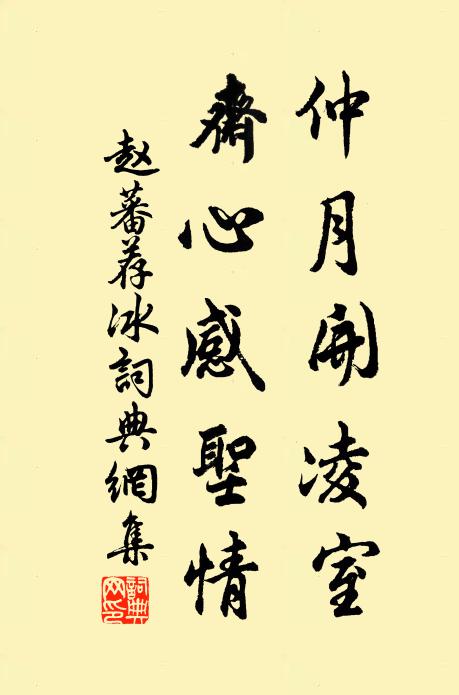 仲月開凌室
齋心感聖情
赵蕃荐冰詞典網集
詞典网印